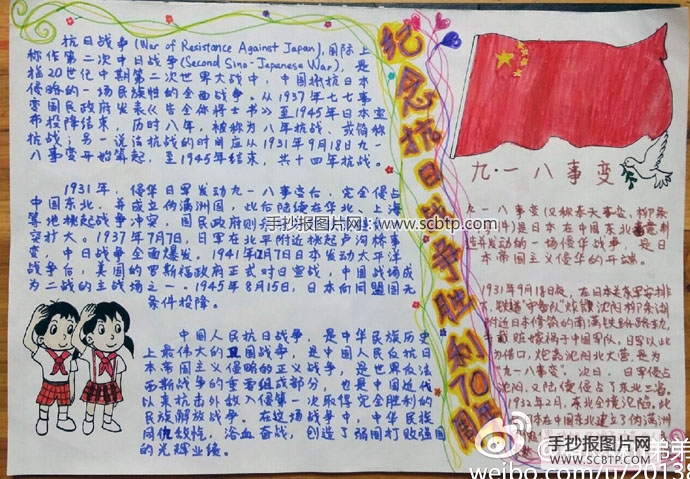 抗日战争(War of Resistance Against Japan),国际上
称作第二次中日战争(Second Sino-Japanese War), 是
指20世纪中期第二次世界大战中, 中国抵抗日本
侵略的一场民族性的全面战争。从1937年七七事
变国民政府发表《告全体将士书》至1945年日本宣
布投降结束, 历时八年, 被称为八年抗战、或简称
抗战; 另一说法抗战的时间应从1931年9月18日九一
八事变开始算起, 至1945年结束, 共十四年抗战。
1931年, 侵华日军发动九一八事变后, 完全侵占
中国东北, 并成立伪满洲国, 此后陆续在华北、上海
等地挑起战争冲突, 国民政府则
突扩大。1937年7月7日, 日军在北平附近挑起卢沟桥事
变, 中日战争全面爆发。1941年12月7日日本发动太平洋
战争后, 美国的罗斯福政府正式对日宣战, 中国战场成
为二战的主战场之一。1945年8月15日, 日本向同盟国无
条件投降。
中国人民抗日战争, 是中华民族历史
上最伟大的卫国战争, 是中国人民反抗日
本帝国主义侵略的正义战争, 是世界反法
西斯战争的重要组成部分, 也是中国近代
以来抗击外敌入侵第一次取得完全胜利的
民族解放战争。在这场战争中, 中华民族
同仇敌忾, 浴血奋战, 创造了弱国打败强国
的光辉业绩。
纪念抗日战争胜利70周年
九·一八事变
九一八事变(又称奉天事变、柳条
件)是日本在中国东北蓄意制
造并发动的一场侵华战争, 是日
本帝国主义侵华的开端。
1931年9月18日夜, 在日本关东军安排
下, 铁道"守备队"炸毁沈阳柳条湖
附近日本修筑的南满铁路路轨,
并栽赃嫁祸于中国军队。日军以此
为借口, 炮轰沈阳北大营, 是为
"九一八事变"。次日, 日军侵占
沈阳, 又陆续侵占了东北三省。
1932年2月, 东北全境沦陷。此
日本在中国东北建立了伪满洲
手抄报图片网
www.scbtp.com
手抄报图片网
SCBTP.COM
弟弟
weibo.com/u/20138